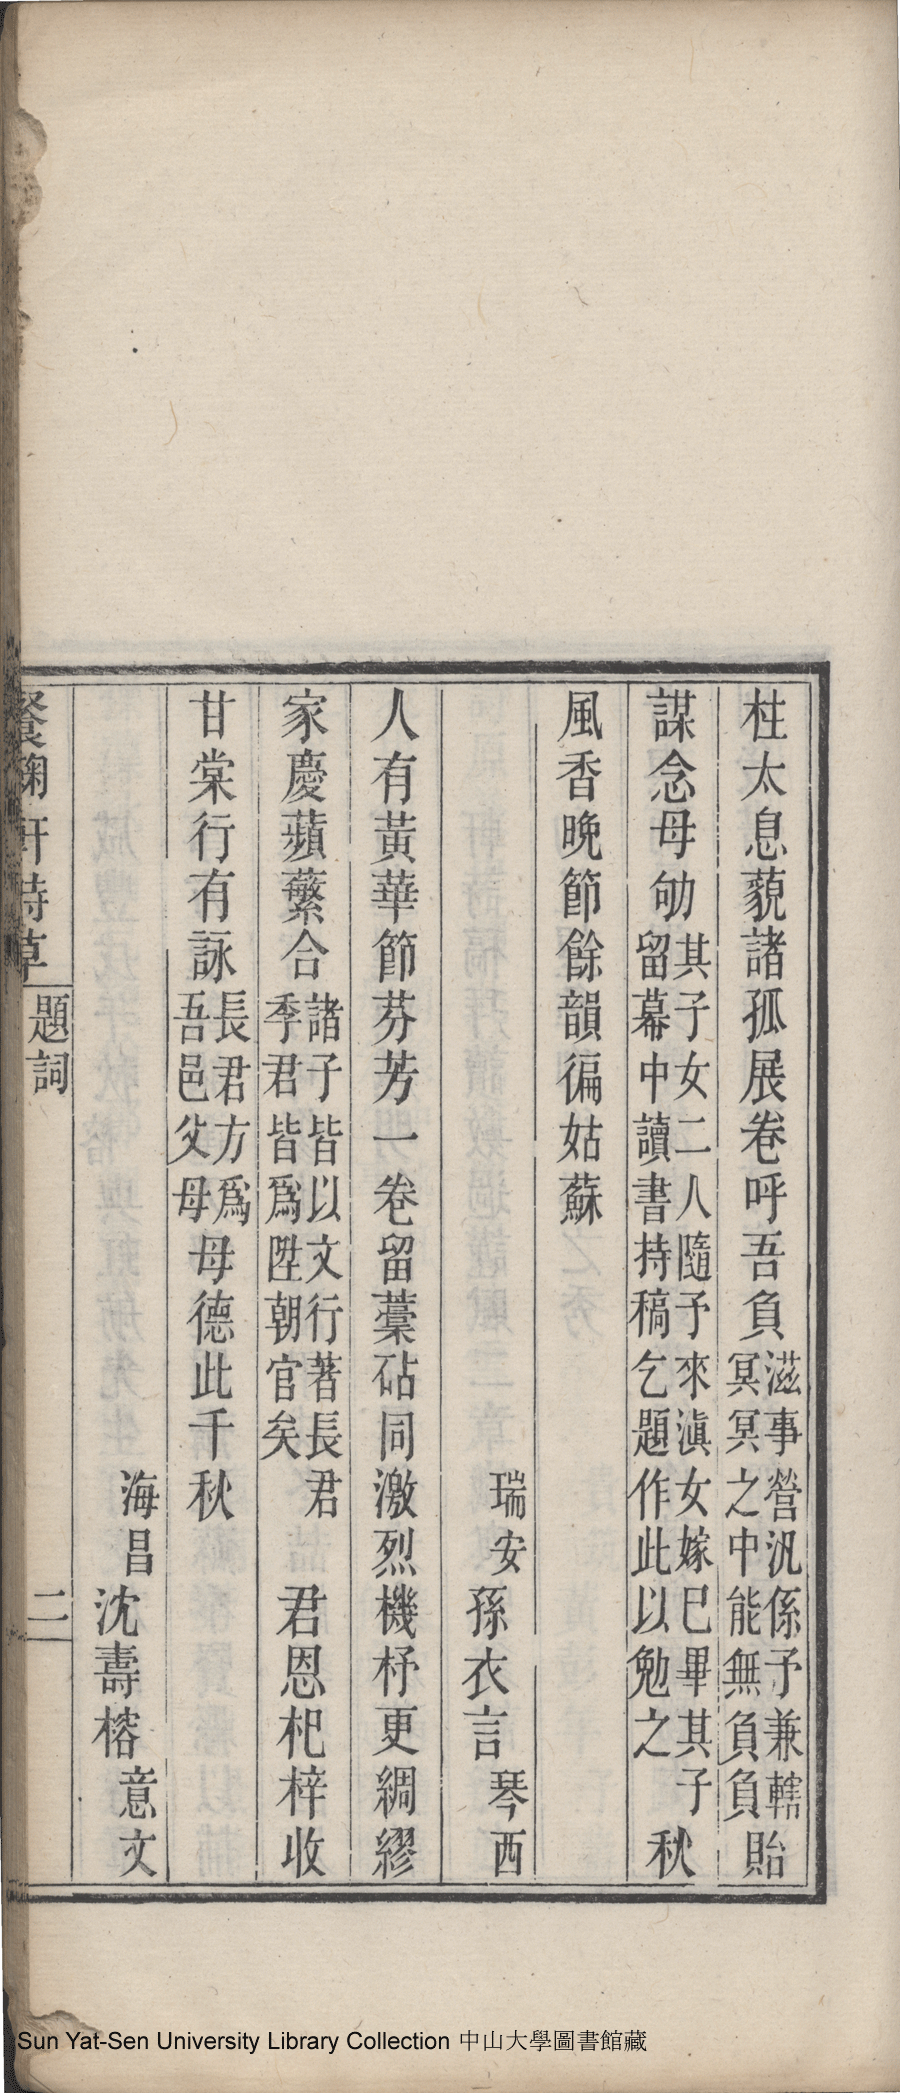 柱太息藐諸孤展卷呼吾負滋事營汛係予兼轄冥冥之中能無負負貽
謀念母劬其子女二人隨予來滇女嫁巳畢其子留幕中讀書持稿乞題作此以勉之秋
風香晚節餘韻徧姑蘇
瑞安孫衣言琴西
人有黃華節芬芳一卷留藁砧同激烈機杼更綢繆
家慶蘋蘩合諸子皆以文行著長君季君皆爲陞朝官矣君恩杞梓收
甘棠行有詠長君方爲吾邑父母母德此千秋
海昌沈壽榕意文
餐鞠軒詩草
題詞
二
Sun Yat-Sen University Library Collection 中山大學圖書館藏